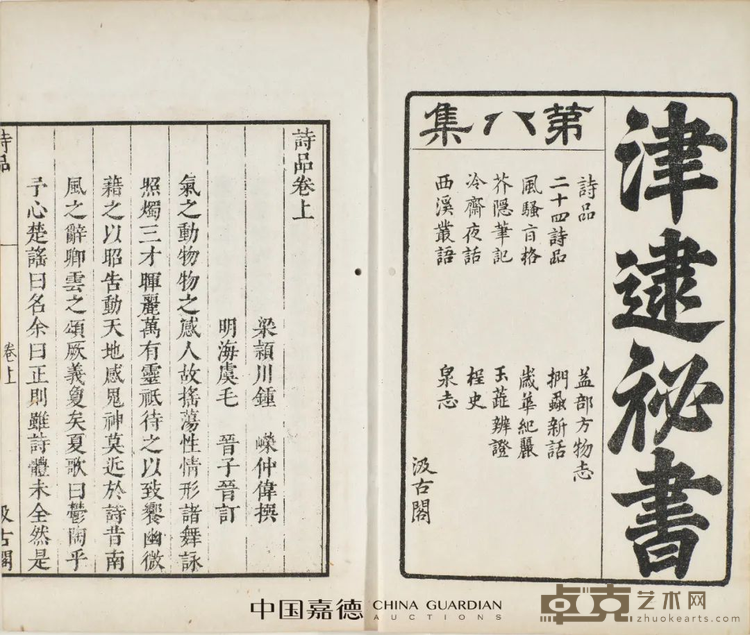 津逮祕書
第八集
詩品
二十四詩品
風騷旨格
芥隱筆記
冷齋夜話
西溪叢語
益部方物志
捫蝨新話
歲華紀麗
玉蘂辨證
桯史
泉志
汲古閣
詩品卷上
梁潁川鍾 嶸仲偉撰
明海虞毛 晉子晉訂
氣之動物物之感人故搖蕩性情形諸舞詠
照燭三才暉麗萬有靈祇待之以致饗幽微
藉之以昭告動天地感鬼神莫近於詩昔南
風之辭卿雲之頌厥義敻矣夏歌曰鬱陶乎
予心楚謠曰名余曰正則雖詩體未全然是
詩品
卷上
汲古閣
中国嘉德 CHINA GUARDIAN
AUCTIONS
卓克艺术网
zhuokearts.com